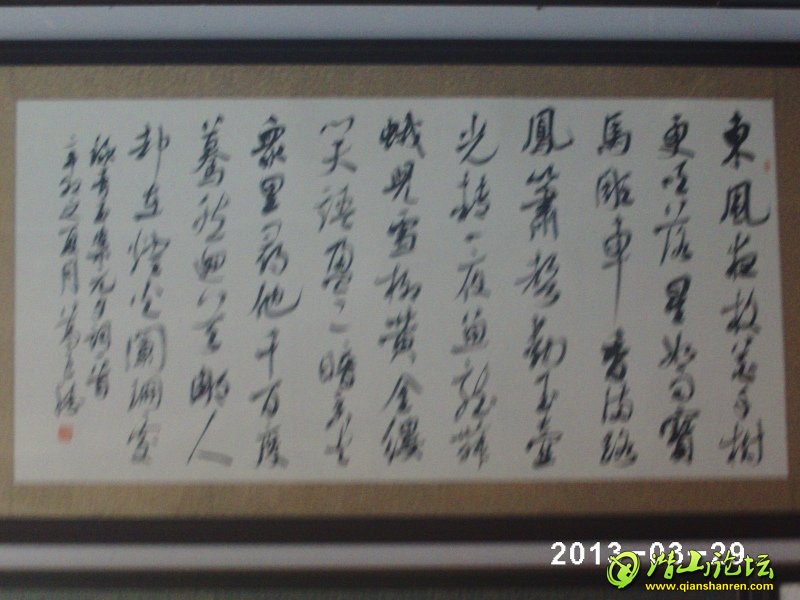 東風夜放花千樹
更吹落星如雨寶
馬雕車香滿路
鳳簫聲動玉壺
光轉一夜魚龍舞
蛾兒雪柳黃金縷
笑語盈〻暗香去
衆里尋他千百度
驀然迴首那人
却在燈火闌珊處
錄青玉案元夕詞一首
辛卯之夏月
2013-03-29
潜山论坛
www.qianshanren.com